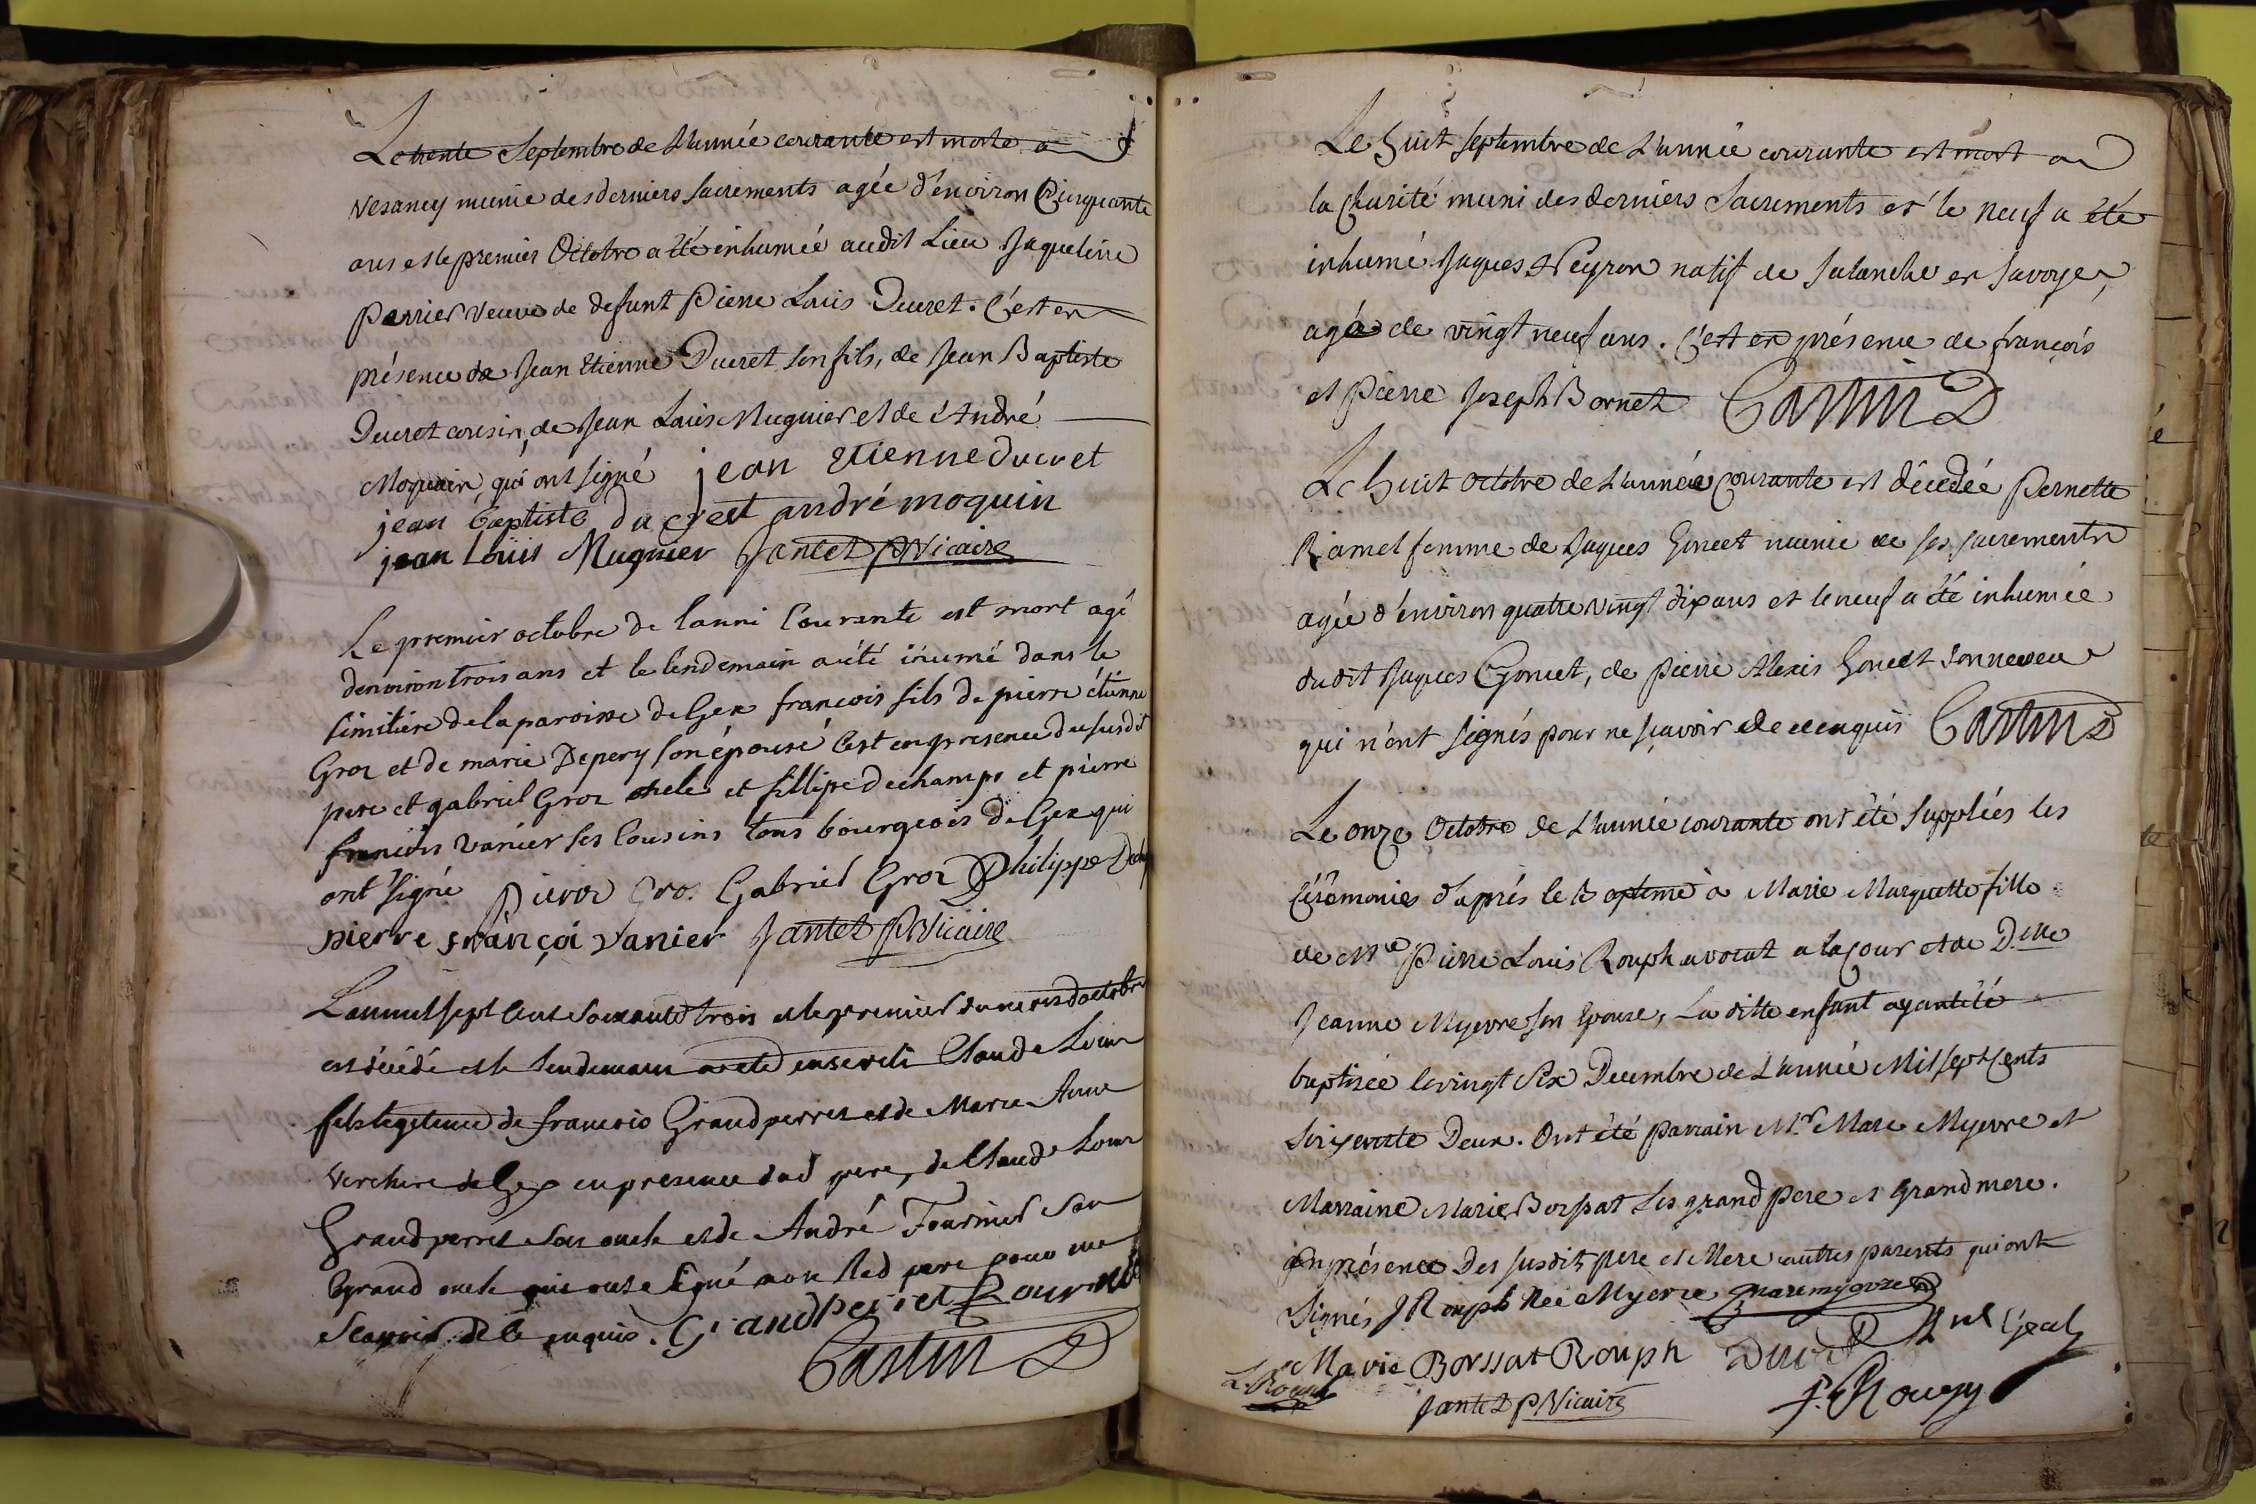 Le trente Septembre de L'année courante est morte a
Vesancy munie des derniers sacrements agée d'environ Cinquante
ans et le premier Octobre a été inhumée audit Lieu Jaqueline
Perrier veuve de defunt Pierre Louis Ducret. C'est en
présence de Jean Etienne Ducret son fils, de Jean Baptiste
Ducret cousin, de Jean Louis Mugnier et de André
Moquain, qui ont signé jean etienne ducret
jean baptiste du crest andré moquin
jean Louis Mugnier Jantet P Vicaire
Le premier octobre de lanni Courante est mort agé
denviron trois ans et le lendemain a été inumé dans le
simitiére de la paroisse de Gex françois fils de pierre étienne
Groz et de marie Depery son épouse C'est en presence du susdit
pere et gabriel Groz et fillipe dechamps et pierre
françois vanier ses Cousins tous bourgeois de Gex qui
ont signé Gro. Gabriel Groz Philippe
pierre françoi vanier Jantet P Vicaire
L'an mil sept Cent Soixante trois et le premier du mois d'octobre
est décédé et le lendemain a eté enseveli Claude Louis
fils legitime de françois Grandperret et de Marie Anne
Verchere de Gex en presence dud pere, de Claude Louis
Grandperret son oncle et de André Fournier son
grand oncle qui ont signé non led pere pour ne
Scavoir de ce enquis. Grandperret Fournié
Castin
Le huit septembre de L'année courante est mort a
la Charité muni des derniers Sacrements et le neuf a été
inhumé Jaques Peyron natif de Salanche en Savoye,
agée de vingt neuf ans. C'est en présence de françois
et Pierre Joseph Bornet Castin
Le huit Octobre de L'année Courante est décedée Pernette
Ramel femme de Jaques Goncet munie de ses sacrements
agée d'environ quatre vingt dix ans et le neuf a été inhumée
dudit Jaques Goncet, de Pierre Alexis Goncet son neveu
qui n'ont signés pour ne sçavoir de ce enquis Castin
Le onze Octobre de L'année courante ont été supplées les
Cérémonies d'aprés le Baptême à Marie Marquette fille
de Me Pierre Louis Rouph avocat a la Cour et de Delle
Jeanne Myevre son Epouse, La ditte enfant ayant été
baptisée le vingt Six Decembre de L'année Mil sept Cents
Soixente Deux. Ont été parrain Mr Marc Myevre et
Marraine Marie Borssat Les grand Pere et grand mere.
en présence Des susdits pere et Mere autres parents qui ont
Signés J Rouph Née Myevre
Marie Borssat Rouph
Jantet P Vicaire P. Rougy